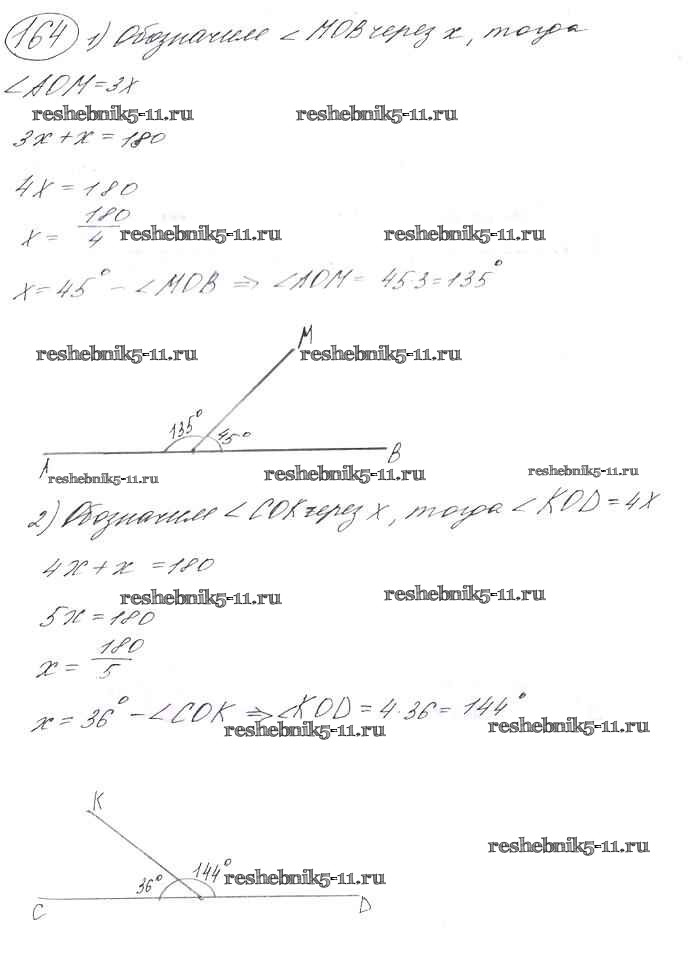 164 1) Обозначим ∠MOB через x, тогда
∠AOM = 3x
reshebnik5-11.ru reshebnik5-11.ru
3x + x = 180
4x = 180
x = 180/4 reshebnik5-11.ru reshebnik5-11.ru
x = 45° - ∠MOB => ∠AOM = 45·3 = 135°
M
reshebnik5-11.ru reshebnik5-11.ru
135° 45°
A B
reshebnik5-11.ru reshebnik5-11.ru reshebnik5-11.ru
2) Обозначим ∠COK через x, тогда ∠KOD = 4x
4x + x = 180
reshebnik5-11.ru reshebnik5-11.ru
5x = 180
x = 180/5
x = 36° - ∠COK => ∠KOD = 4·36 = 144°
reshebnik5-11.ru reshebnik5-11.ru
K
reshebnik5-11.ru
36° 144° reshebnik5-11.ru
C D